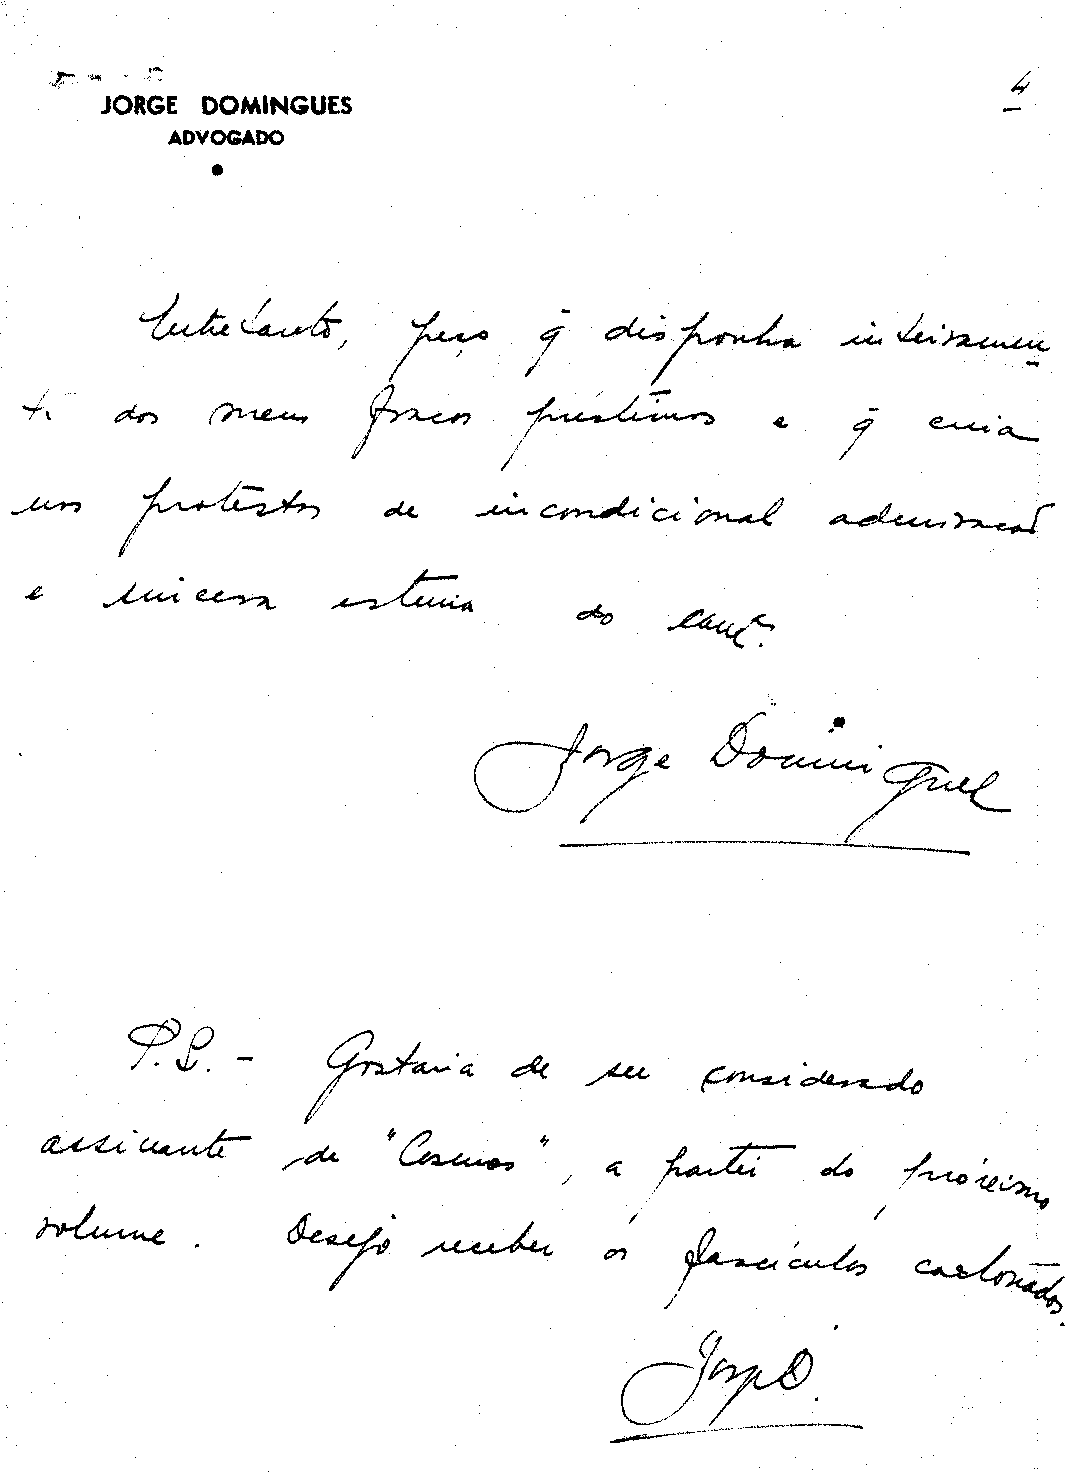 JORGE DOMINGUES
4
ADVOGADO
Entretanto, peço q̄ disponha inteiramen-
te dos meus fracos préstimos e q̄ creia
nos protestos de incondicional admiração
e sincera estima do
Jorge Domingues
P.S. - Gostaria de ser considerado
assinante de "Cosmos", a partir do próximo
volume. Desejo receber os fascículos cartonados.
Jorge D.